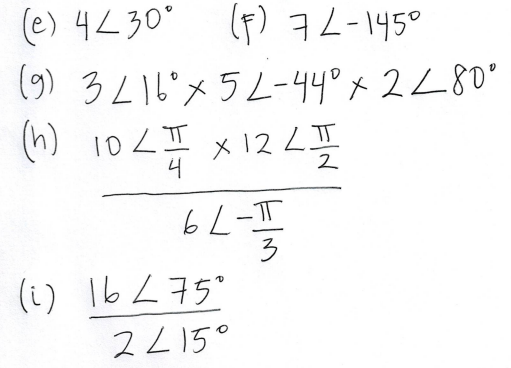 (e) 4∠30° (f) 7∠-145°
(g) 3∠16° × 5∠-44° × 2∠80°
(h) 10∠π/4 × 12∠π/2
6∠-π/3
(i) 16∠75°
2∠15°